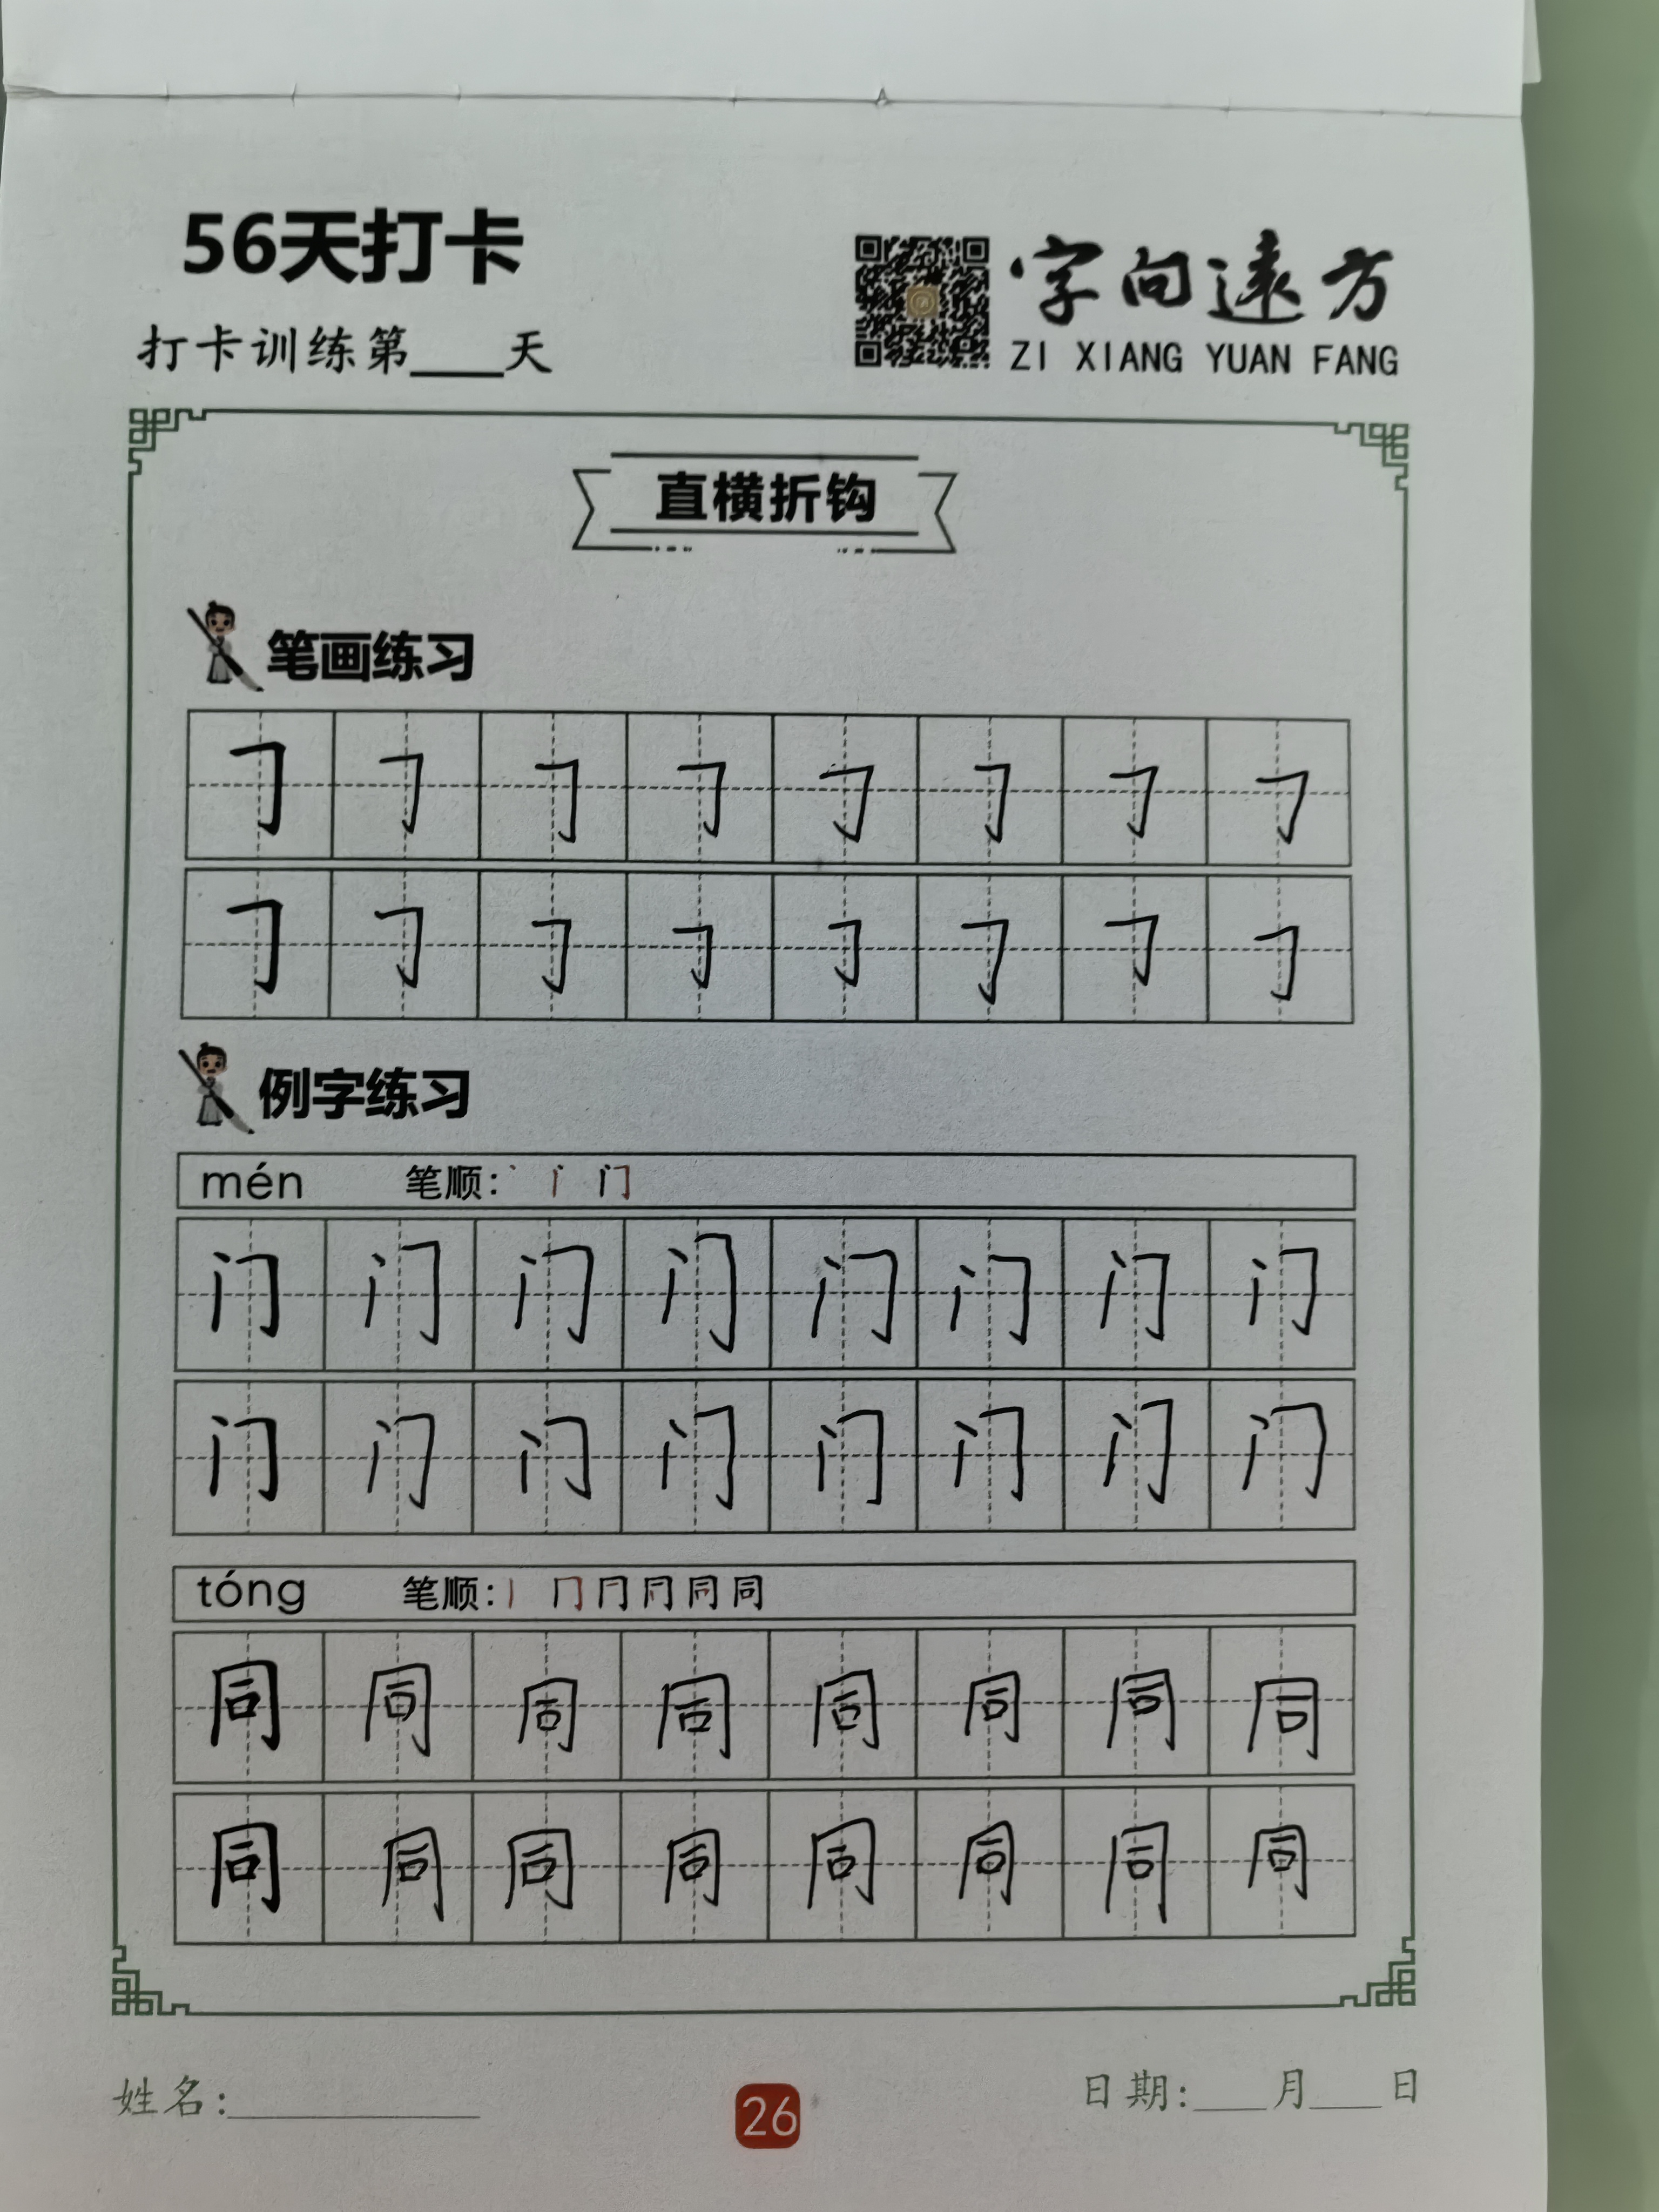 56天打卡
打卡训练第____天
字向遠方
ZI XIANG YUAN FANG
直横折钩
笔画练习
𠃌 𠃌 𠃌 𠃌 𠃌 𠃌 𠃌 𠃌
𠃌 𠃌 𠃌 𠃌 𠃌 𠃌 𠃌 𠃌
例字练习
mén 笔顺：丶 丨 门
门 门 门 门 门 门 门 门
门 门 门 门 门 门 门 门
tóng 笔顺：丨 冂 同
同 同 同 同 同 同 同 同
同 同 同 同 同 同 同 同
姓名：__________
26
日期：___月___日